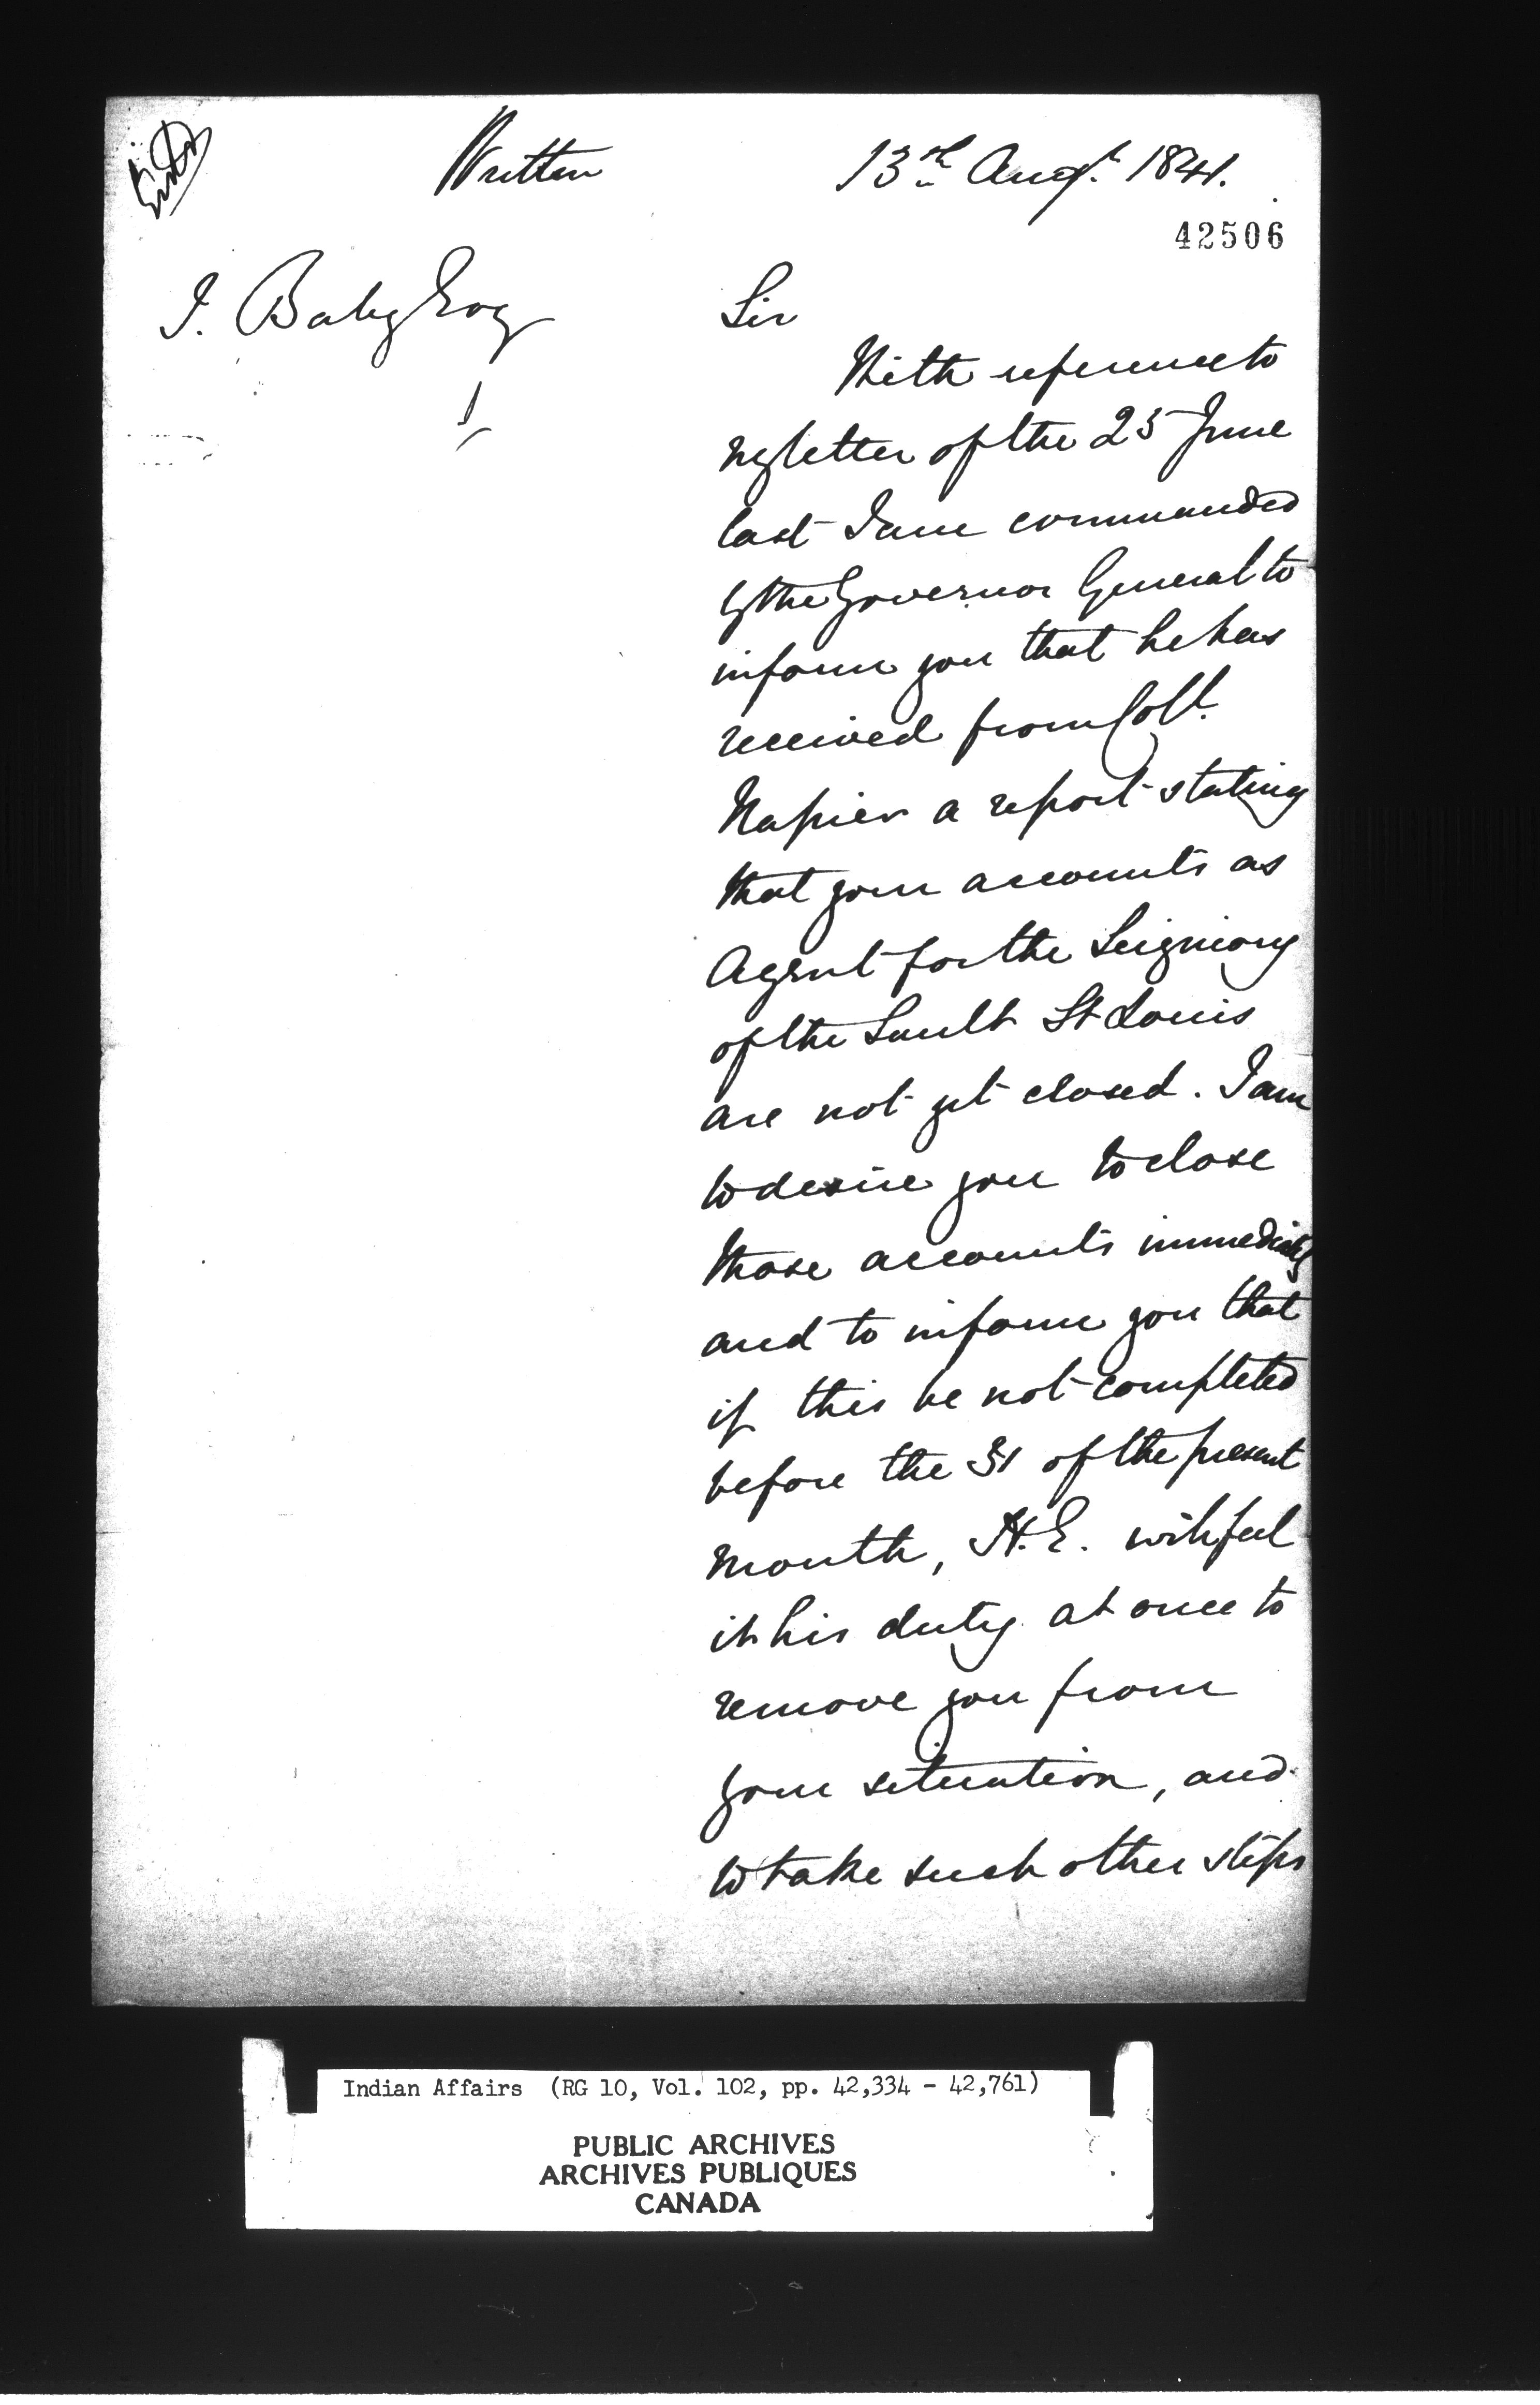 Written
13th Augt. 1841.
42506
I. Baby Esq
Sir
With reference to
my letter of the 25 June
last I am commanded
by the Governor General to
inform you that he has
received from Coll.
Napier a report stating
that your accounts as
Agent for the Seigniory
of the Sault St Louis
are not yet closed. I am
to desire you to close
those accounts immediately
and to inform you that
if this be not completed
before the 31 of the present
month, H.E. will feel
it his duty at once to
remove you from
your situation, and
to take such other steps
Indian Affairs (RG 10, Vol. 102, pp. 42,334 - 42,761)
PUBLIC ARCHIVES
ARCHIVES PUBLIQUES
CANADA